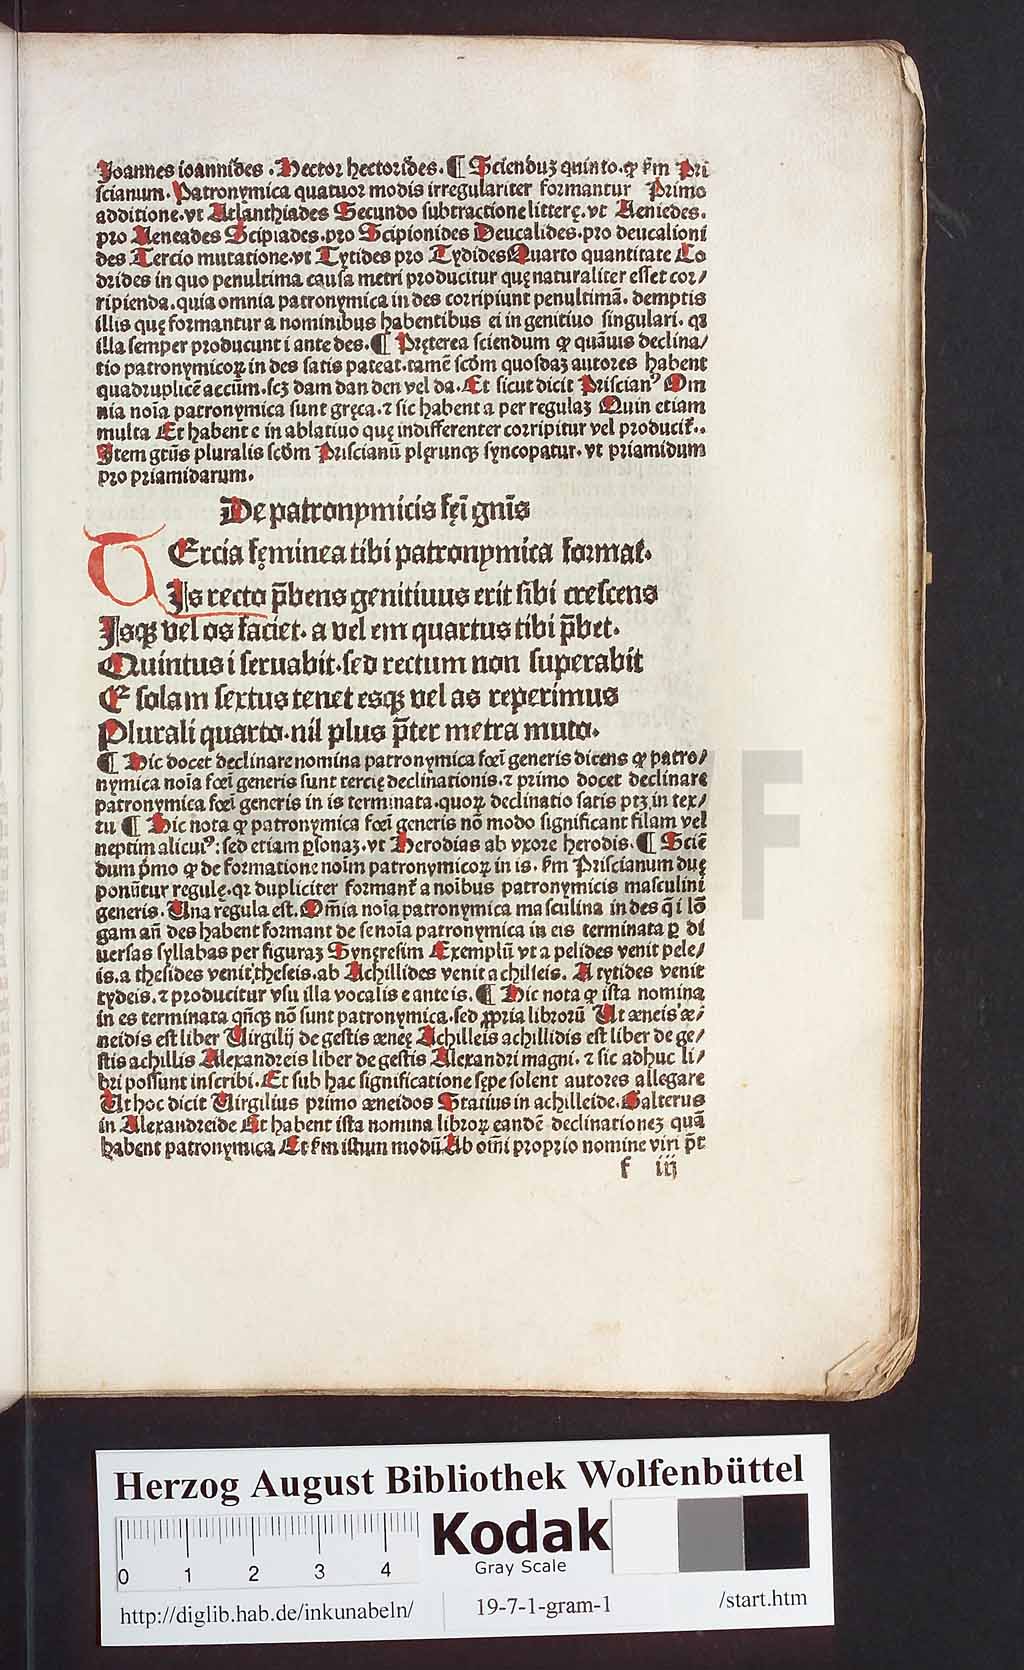 Joannes ioannides . Hector hectorides . ¶ Scienduꝫ quinto . ꝙ ẜm Pri
scianum . Patronymica quatuor modis irregulariter formantur Primo
additione . vt Atlanthiades Secundo subtractione litterę . vt Aeniedes .
pro Aeneades Scipiades . pro Scipionides Deucalides . pro deucalioni
des Tercio mutatione . vt Tytides pro Tydides Quarto quantitate Co
drides in quo penultima causa metri producitur quę naturaliter esset cor/
ripienda . quia omnia patronymica in des corripiunt penultimā . demptis
illis quę formantur a nominibus habentibus ei in genitiuo singulari . qꝛ
illa semper producunt i ante des . ¶ Pręterea sciendum ꝙ quāuis declina/
tio patronymicoꝝ in des satis pateat . tamē scďm quosdaꝫ autores habent
quadruplicē accūm . scꝫ dam dan den vel da . Et sicut dicit Prisciañꝰ Om
nia noīa patronymica sunt gręca . ⁊ sic habent a per regulaꝫ Quin etiam
multa Et habent̄ e in ablatiuo quę indifferenter corripitur vel producit̉ ..
Item gtūs pluralis scďm Priscianū plęrunqꝫ syncopatur . vt priamidum
pro priamidarum .
De patronymicis fęī gnīs
TErcia fęminea tibi patronymica format̉ .
Is recto p̄bens genitiuus erit sibi crescens
Isqꝫ vel os faciet . a vel em quartus tibi p̄bet .
Quintus i seruabit . sed rectum non superabit
E solam sextus tenet esqꝫ vel as reperimus
Plurali quarto . nil plus p̄ter metra muto .
¶ Hic docet declinare nomina patronymica fœī generis dicens ꝙ patro/
nymica noīa fœī generis sunt tercię declinationis . ⁊ primo docet declinare
patronymica fœī generis in is terminata . quoꝝ declinatio satis ptꝫ in tex/
tu ¶ Hic nota ꝙ patronymica fœī generis nō modo significant filam vel
neptim alicuiꝰ : sed etiam ꝑsonaꝫ . vt Herodias ab vxore herodis . ¶ Sciē
dum pͥmo ꝙ de formatione noīm patronymicoꝝ in is . ẜm Priscianum duę
ponūtur regulę . qꝛ dupliciter formant̉ a noībus patronymicis masculini
generis . Una regula est . Om̄ia noīa patronymica masculina in des q̄ i lō
gam an̄ des habent formant de se noīa patronymica in eis terminata ꝑ di
uersas syllabas per figuraꝫ Synęresim Exemplū vt a pelides venit pele/
is . a thesides venit theseis . ab Achillides venit achilleis . A tytides venit
tydeis . ⁊ producitur vsu illa vocalis e ante is . ¶ Hic nota ꝙ ista nomina
in es terminata qn̄qꝫ nō sunt patronymica . sed ꝓpria librorū Ut æneis æ/
neidis est liber Uirgilij de gestis æneę Achilleis achillidis est liber de ge/
stis achillis Alexandreis liber de gestis Alexandri magni . ⁊ sic adhuc li/
bri possunt inscribi . Et sub hac significatione sępe solent autores allegare
Ut hoc dicit Uirgilius primo æneidos Statius in achilleide . Galterus
in Alexandreide Et habent ista nomina libroꝝ eandē declinationeꝫ quā
habent patronymica Et ẜm istum modū Ab om̄i proprio nomine viri p̄t
f iij
Herzog August Bibliothek Wolfenbüttel
Kodak
Gray Scale
0 1 2 3 4
http://diglib.hab.de/inkunabeln/
19-7-1-gram-1
/start.htm